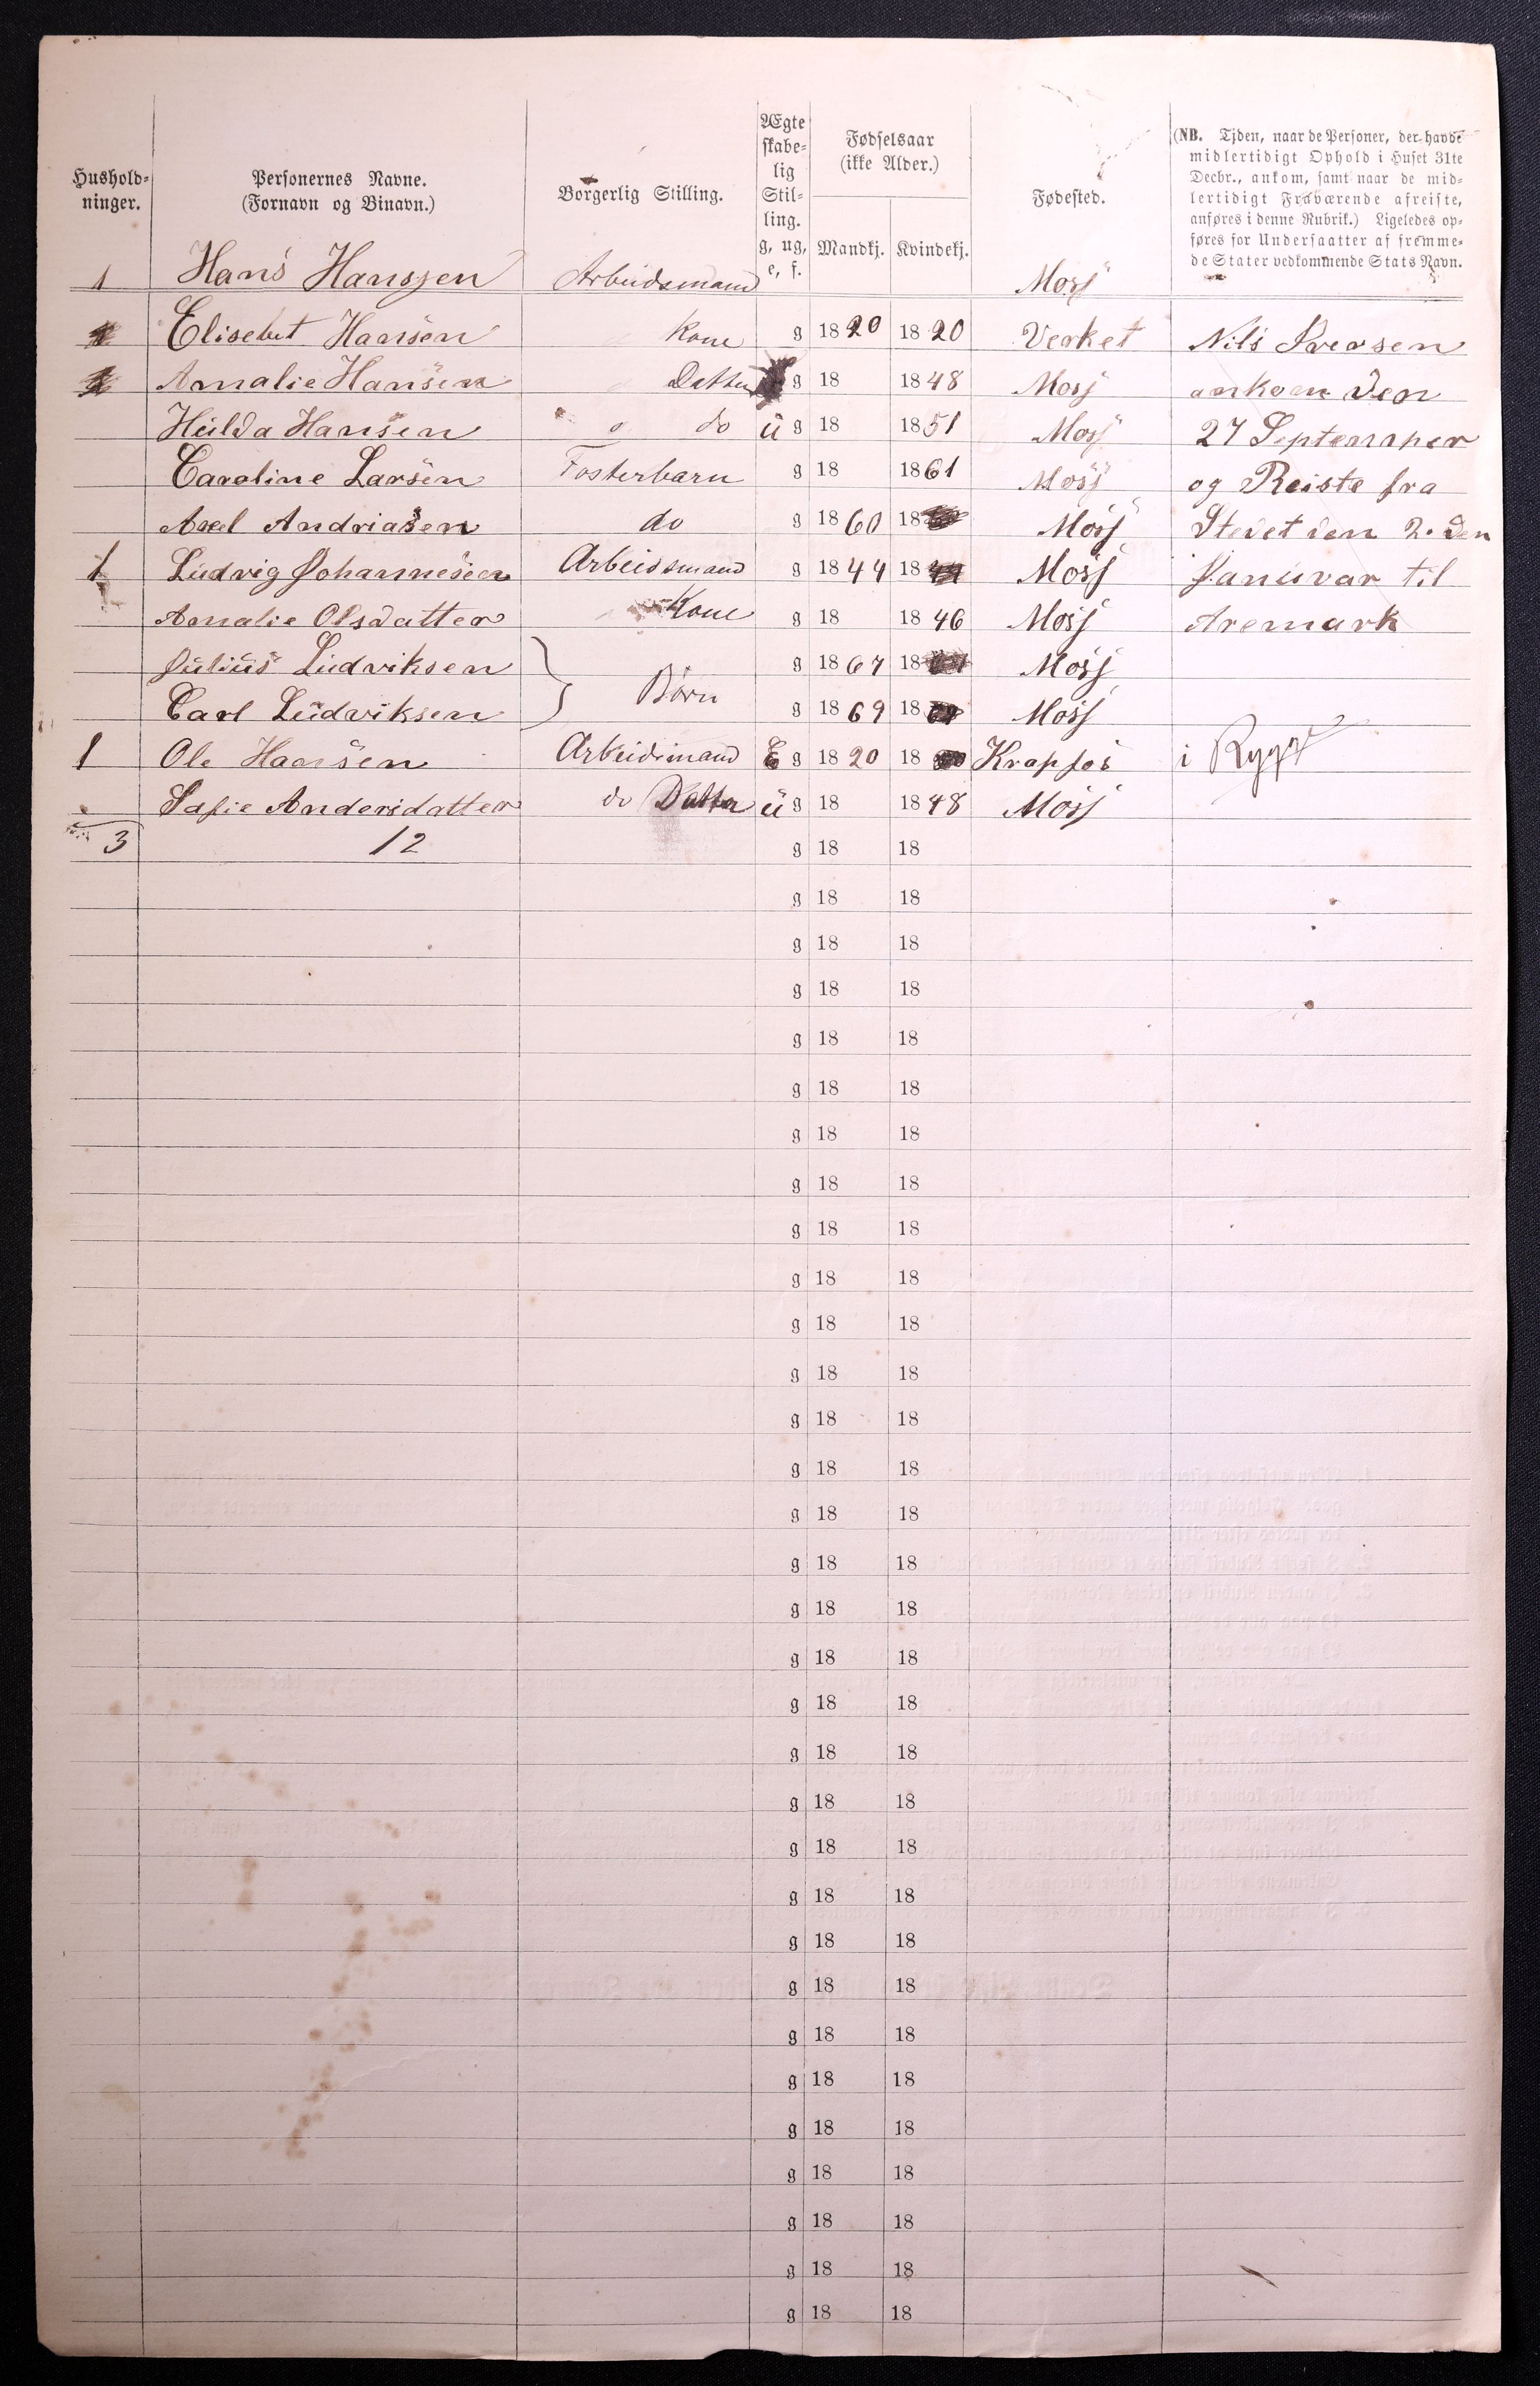 Hushold-
ninger.
Personernes Navne.
(Fornavn og Binavn.)
Borgerlig Stilling.
Ægte
skabe-
lig
Stil-
ling.
g, ug,
e, f.
Fødselsaar
(ikke Alder.)
Mandkj. Kvindekj.
Fødested.
(NB. Tiden, naar de Personer, der havde
midlertidigt Ophold i Huset 31te
Decbr., ankom, samt naar de mid-
lertidigt Fraværende afreiste,
anføres i denne Rubrik.) Ligeledes op-
føres for Undersaatter af fremme-
de Stater vedkommende Stats Navn.
1 Hans Hanssen Arbeidsmand Moss
Elisebet Hansen Kone g 1820 1820 Verket Nils Iversen
Amalie Hansen Datter g 18 1848 Moss ankom den
Hulda Hansen do ug 18 1851 Moss 27 September
Caroline Larsen Fosterbarn g 18 1861 Moss og Reiste fra
Axel Andriasen do g 1860 18 Moss Stedet den 2.den
1 Ludvig Johannesen Arbeissmand g 1844 18 Moss Januvar til
Amalie Olsdatter Kone g 18 1846 Moss Aremark
Julius Ludviksen g 1867 18 Moss
Carl Ludviksen } Børn g 1869 18 Moss
1 Ole Hansen Arbeidsmand E g 1820 18 Krapfos i Rygge
Sofie Andersdatter do Datter ug 18 1848 Moss
3 12 g 18 18
g 18 18
g 18 18
g 18 18
g 18 18
g 18 18
g 18 18
g 18 18
g 18 18
g 18 18
g 18 18
g 18 18
g 18 18
g 18 18
g 18 18
g 18 18
g 18 18
g 18 18
g 18 18
g 18 18
g 18 18
g 18 18
g 18 18
g 18 18
g 18 18
g 18 18
g 18 18
g 18 18
g 18 18
g 18 18
g 18 18
g 18 18